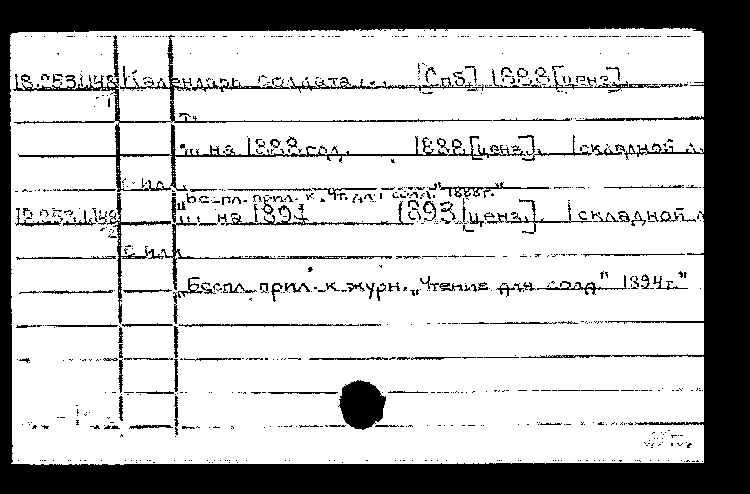 18.253.1.148 Календарь солдата... [Спб.] 1888 [ценз.]
1
Т.
"... на 1888 год. 1888 [ценз.]. 1 складной л.
с ил.
"Беспл. прил. к "Чт. для солд." 1888г."
18.253.1.148 "... на 1893 1893 [ценз.]. 1 складной л
2
с илл.
"Беспл. прил. к журн. "Чтение для солд" 1894г."